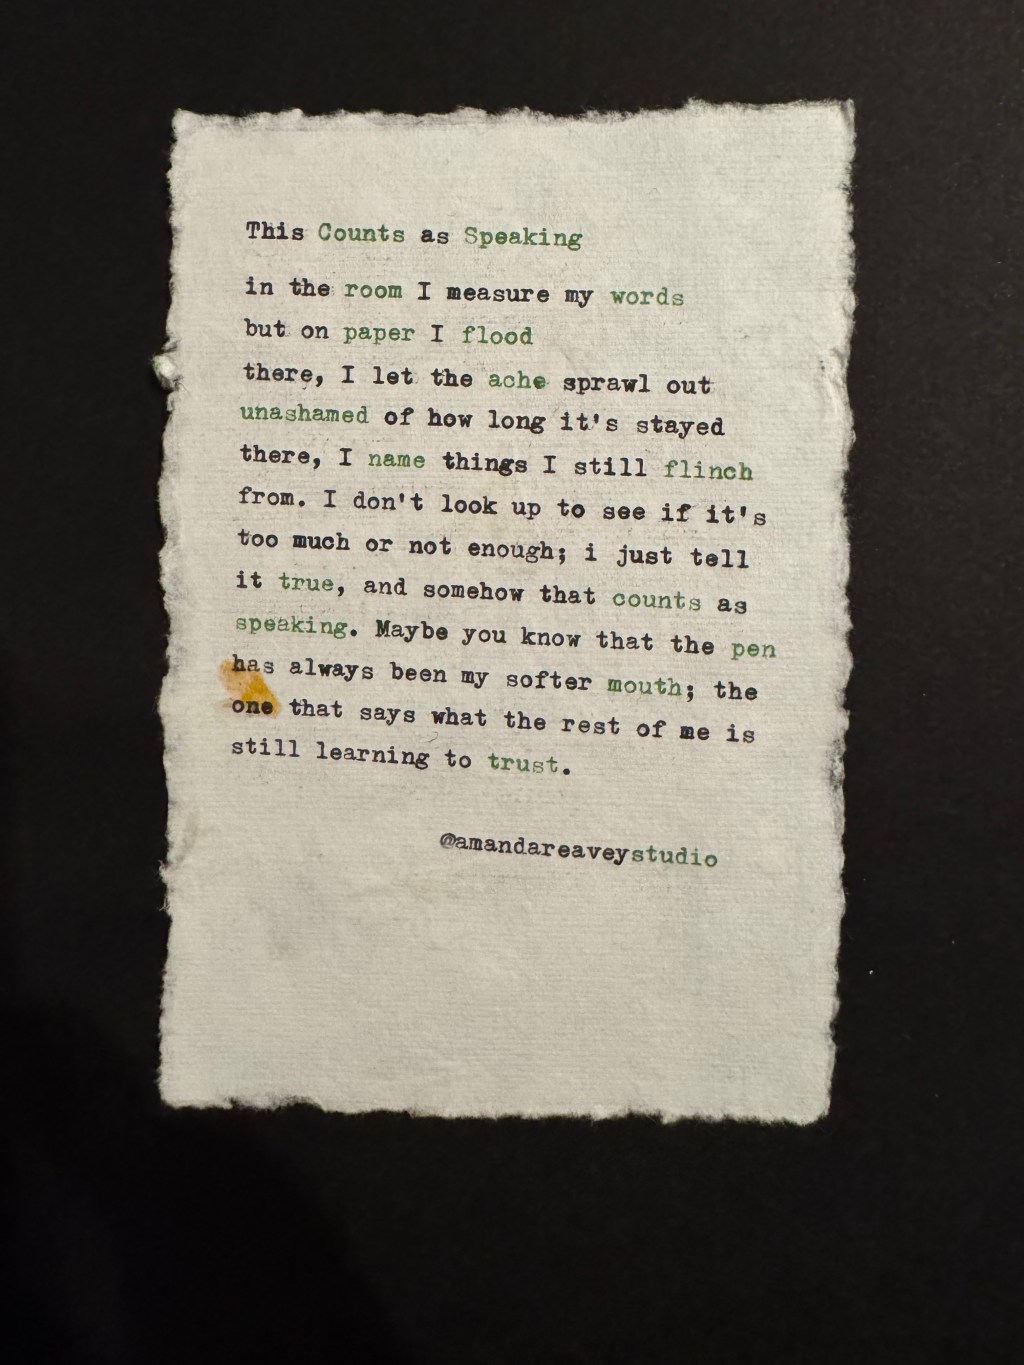 This Counts as Speaking
in the room I measure my words
but on paper I flood
there, I let the ache sprawl out
unashamed of how long it's stayed
there, I name things I still flinch
from. I don't look up to see if it's
too much or not enough; i just tell
it true, and somehow that counts as
speaking. Maybe you know that the pen
has always been my softer mouth; the
one that says what the rest of me is
still learning to trust.
@amandareaveystudio